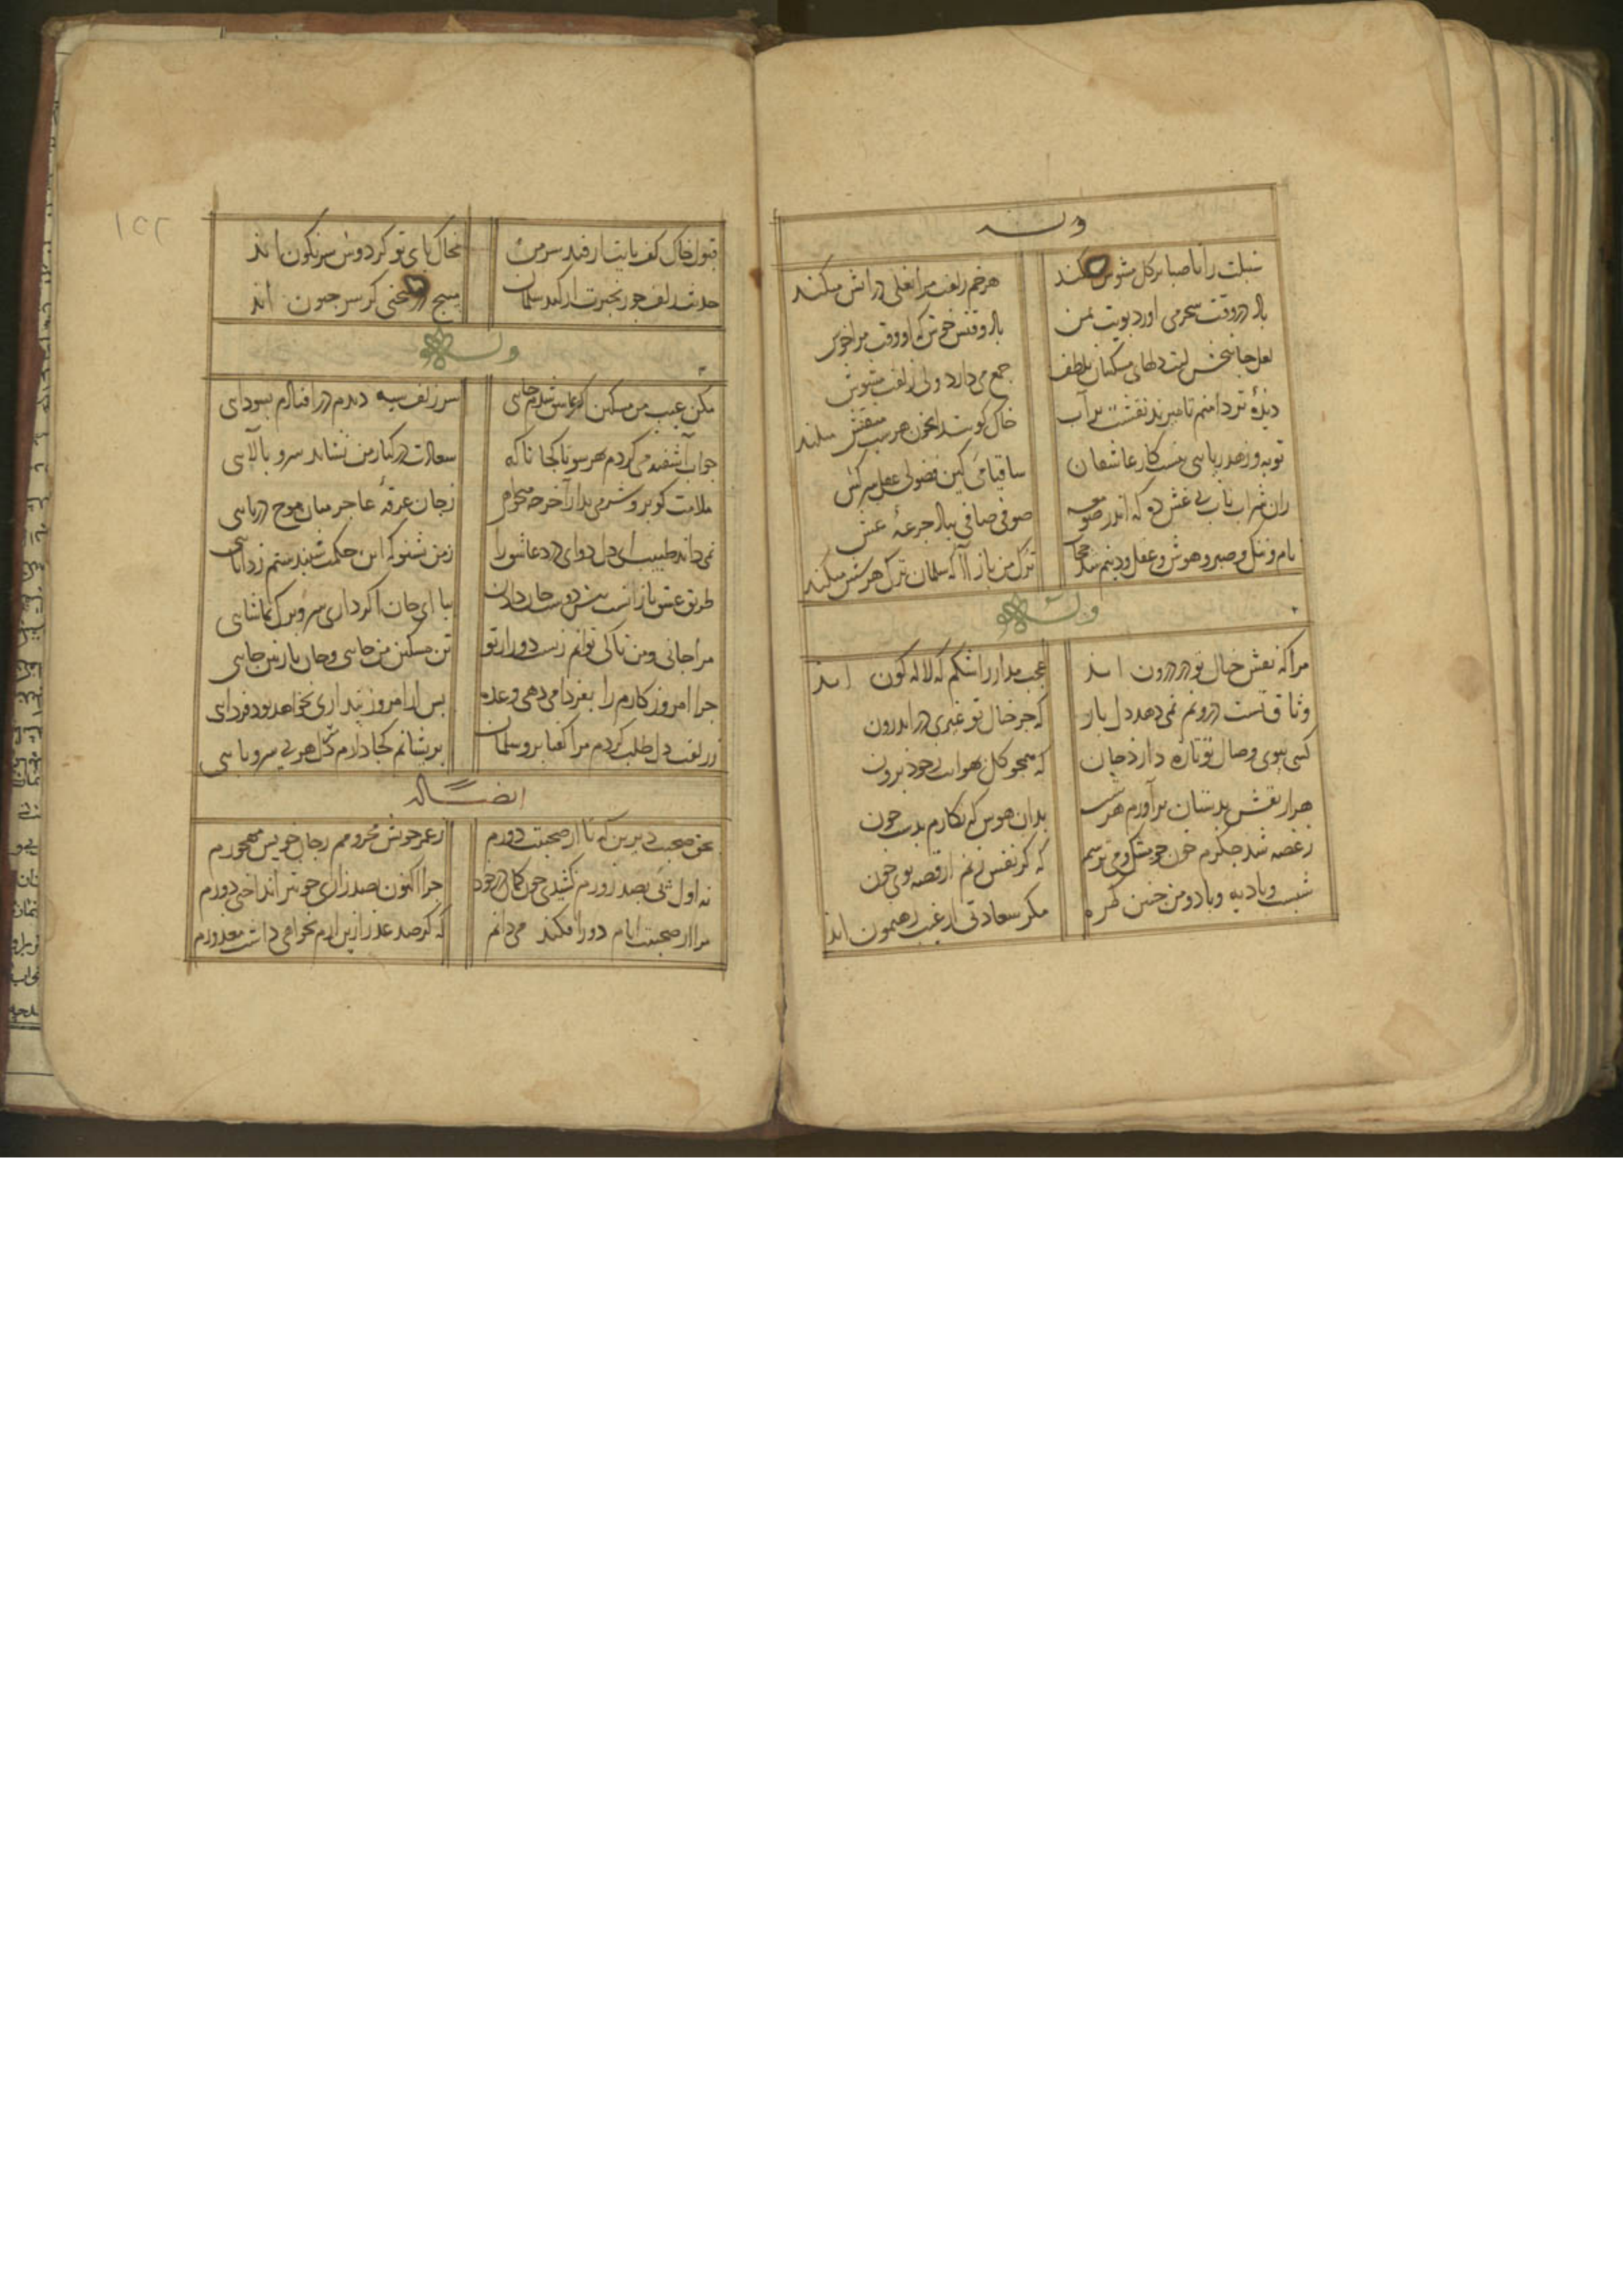 وله
سنبلت را تا صبا بر گل مشوش میکند
هر خم زلفت مرا نعلی در آتش میکند
باد در وقت سحر می آورد بویت بمن
باد وقتش خوش که او وقت مرا خوش
لعل جانبخش لبت دلهای مسکینان بلطف
جمع می دارد ولی زلفت مشوش
دیدهٔ تر دامنم تا میزند نقشت بر آب
خاک کویت را بخون هر شب منقش میکند
توبه و زهد ریایی نیست کار عاشقان
ساقیا می کین فضولی عقل سرکش
زان شراب ناب بی غش ده که اندر صومعه
صوفی صافی بیاد جرعهٔ غش
نام و ننگ و صبر و هوش و عقل و دینم شد حجاب
ترک من باز آ که سلمان ترک هر شش میکند
وله
مرا که نقش خیال تو در درون اید
عجب مدار ز اشکم که لاله گون اید
وثاق تست درونم نمی دهد دل بار
که جز خیال تو غیری در اندرون
کسی ببوی وصال تو تازه دارد جان
که همچو گل بهوایت ز خود برون
هزار نقش بدستان بر آورم هر شب
بدان هوس که نگارم بدست چون
ز غصه شد جگرم خون جو مشک و می ترسم
که گر نفس زنم از قصه بوی خون
شبست و بادیه و باد و من چنین گمره
مگر سعادتی از غیب رهنمون اید
۱۵۲
قبول خاک کف پایت ار فتد سر من
بخاک پای تو گردون سرنگون اید
حدیث زلف چو زنجیرت ار کند سلمان
بسنج در سخنی کز سر جنون اید
وله
مکن عیب من مسکین که عاشق شدم جایی
سر زلف سیه دیدم در افتادم بسودای
چو آب آشفته می گردم بهر سو تا کجا ناگه
سعادت در کنار من نشاند سرو بالایی
ملامت گو برو شرمی بدار آخر چه میخواهی
ز جان غرقهٔ عاجز میان موج دریایی
نمی داند طبیب ای دل دوای درد عاشق را
ز من بشنو که این حکمت شنیدستم ز دانایی
طریق عشق بازانست پیش دوست جان دادن
بیا ای جان اگر داری سر و برگ تماشایی
مرا جانی و من تا کی توانم زیست دور از تو
تن مسکین من جایی و جان نازنین جایی
چرا امروز کارم را بفردا می دهی وعده
پس از امروز پنداری نخواهد بود فردای
ز زلفت دل طلب کردم مرا گفتا برو سلمان
پریشانم کجا دارم دل هر بی سر و پایی
ایضا له
بحق صحبت دیرین که تا از صحبتت دورم
ز عمر خویش محرومم ز جان خویش مهجورم
نه اول شئی بصد زورم کشیدی چون کمان در خود
چرا اکنون بصد زاری چو تیر انداختی دورم
مرا از صحبتت ایام دور افکند می دانم
که گر صد عذر ازین آرم نخواهی داشت معذورم